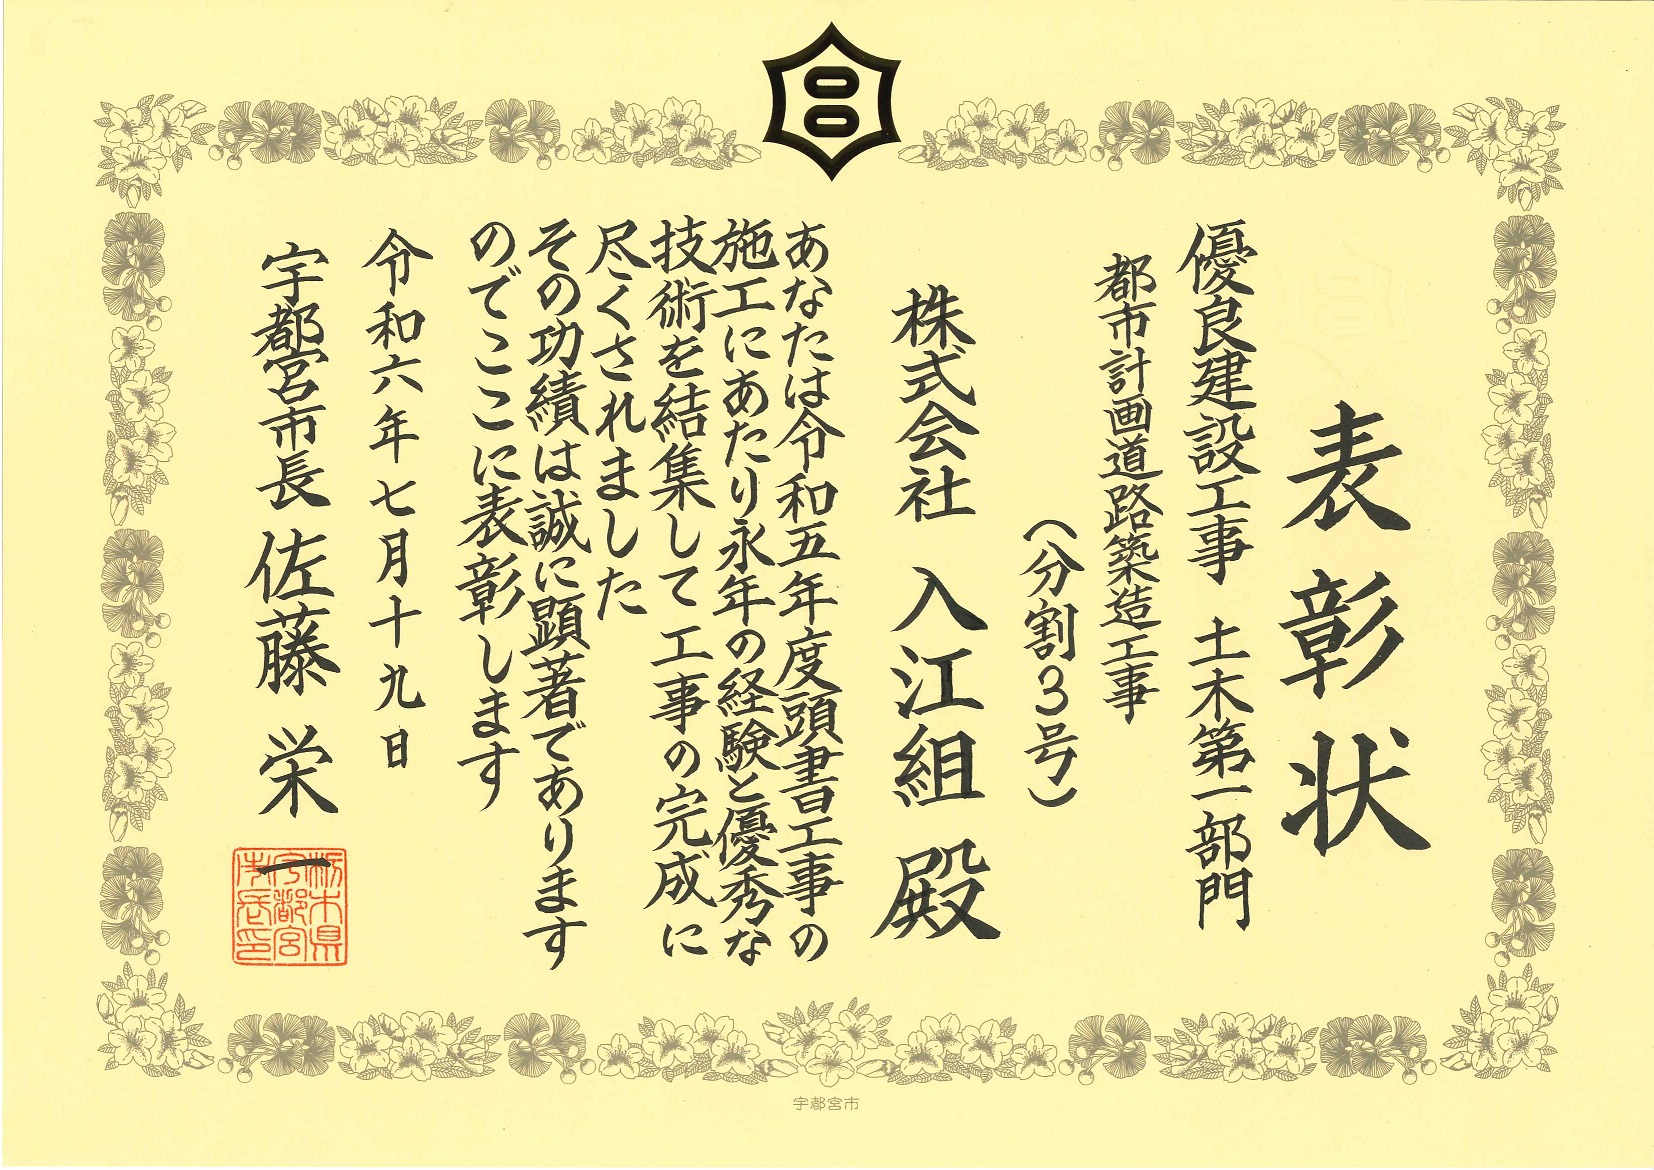 表彰状
優良建設工事 土木第一部門
都市計画道路築造工事
（分割3号）
株式会社 入江組 殿
あなたは令和五年度頭書工事の
施工にあたり永年の経験と優秀な
技術を結集して工事の完成に
尽くされました
その功績は誠に顕著であります
のでここに表彰します
令和六年七月十九日
宇都宮市長 佐藤 栄一
栃木県
宇都宮
市長印
宇都宮市